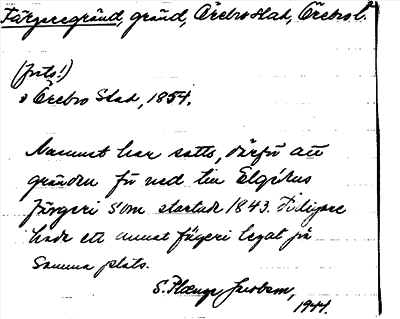 Färgeregränd, gränd, Örebro stad, Örebro l.
(Juts!)
i Örebro Stad, 1854.
Namnet har satts, därför att
gränden för ned till Elgérus
färgeri som startade 1843. Tidigare
hade ett annat färgeri legat på
samma plats.
S. Plænge Jacobson,
1944.